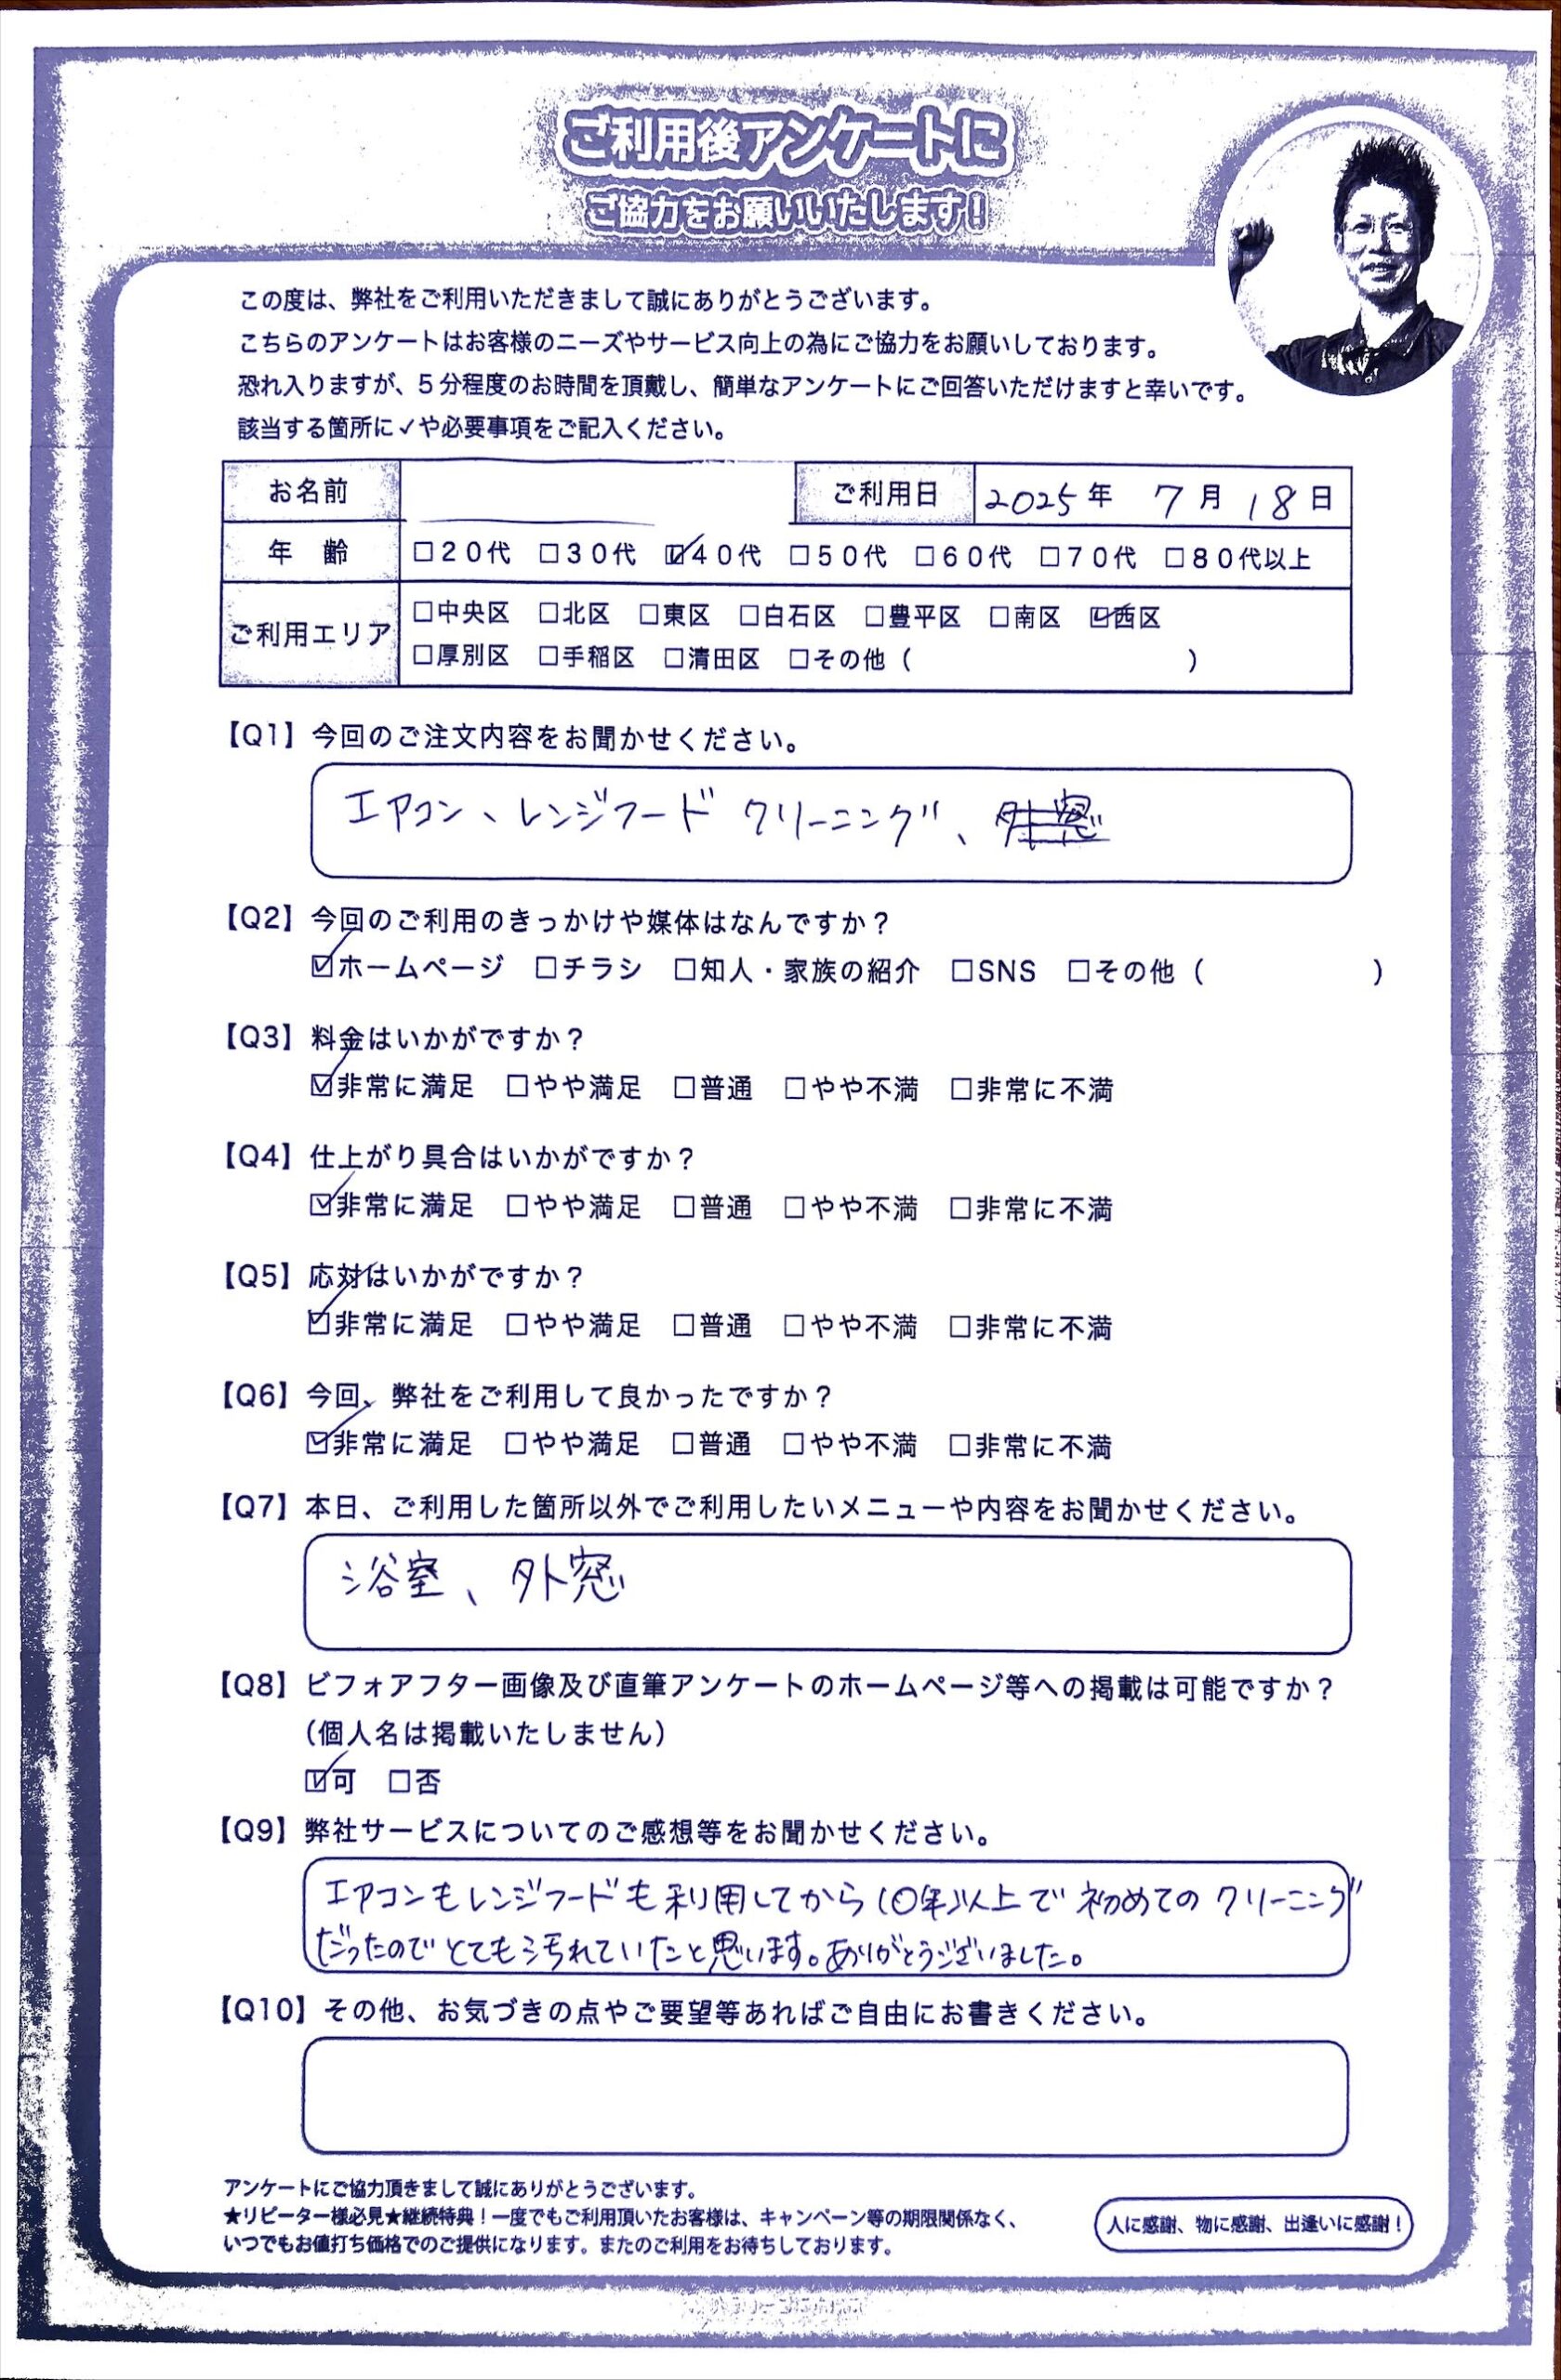 ご利用後アンケートに
ご協力をお願いいたします！
この度は、弊社をご利用いただきまして誠にありがとうございます。
こちらのアンケートはお客様のニーズやサービス向上の為にご協力をお願いしております。
恐れ入りますが、5分程度のお時間を頂戴し、簡単なアンケートにご回答いただけますと幸いです。
該当する箇所に✓や必要事項をご記入ください。
お名前 ご利用日 2025年 7月 18日
年 齢 □20代 □30代 ☑40代 □50代 □60代 □70代 □80代以上
ご利用エリア □中央区 □北区 □東区 □白石区 □豊平区 □南区 ☑西区
□厚別区 □手稲区 □清田区 □その他（ ）
【Q1】今回のご注文内容をお聞かせください。
エアコン、レンジフード クリーニング、外窓
【Q2】今回のご利用のきっかけや媒体はなんですか？
☑ホームページ □チラシ □知人・家族の紹介 □SNS □その他（ ）
【Q3】料金はいかがですか？
☑非常に満足 □やや満足 □普通 □やや不満 □非常に不満
【Q4】仕上がり具合はいかがですか？
☑非常に満足 □やや満足 □普通 □やや不満 □非常に不満
【Q5】応対はいかがですか？
☑非常に満足 □やや満足 □普通 □やや不満 □非常に不満
【Q6】今回、弊社をご利用して良かったですか？
☑非常に満足 □やや満足 □普通 □やや不満 □非常に不満
【Q7】本日、ご利用した箇所以外でご利用したいメニューや内容をお聞かせください。
浴室、外窓
【Q8】ビフォアフター画像及び直筆アンケートのホームページ等への掲載は可能ですか？
（個人名は掲載いたしません）
☑可 □否
【Q9】弊社サービスについてのご感想等をお聞かせください。
エアコンもレンジフードも利用してから10年以上で初めてのクリーニング
だったのでとても汚れていたと思います。ありがとうございました。
【Q10】その他、お気づきの点やご要望等あればご自由にお書きください。
アンケートにご協力頂きまして誠にありがとうございます。
★リピーター様必見★継続特典！一度でもご利用頂いたお客様は、キャンペーン等の期限関係なく、
いつでもお値打ち価格でのご提供になります。またのご利用をお待ちしております。
人に感謝、物に感謝、出逢いに感謝！